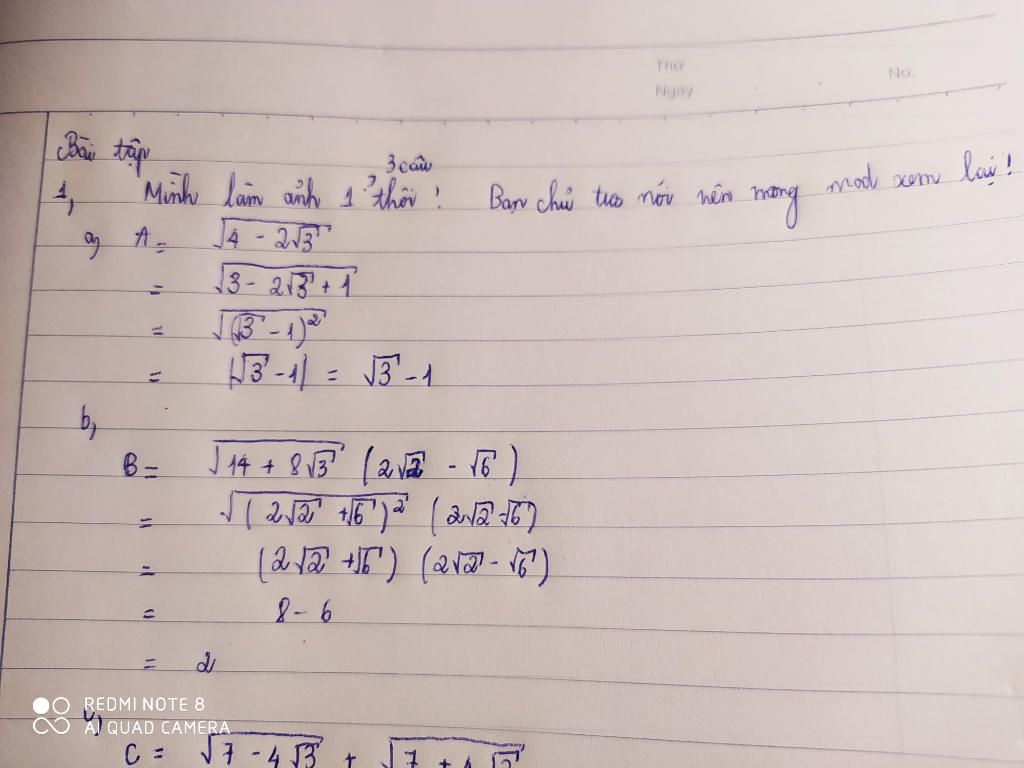 Thứ
Ngày
No.
Bài tập
3 câu
1, Mình làm ảnh 1 thôi! Bạn chủ tus nói nên mong mod xem lại!
a, A = √(4 - 2√3)
= √(3 - 2√3 + 1)
= √((√3 - 1)²)
= |√3 - 1| = √3 - 1
b,
B = √(14 + 8√3) (2√2 - √6)
= √((2√2 + √6)²) (2√2 - √6)
= (2√2 + √6) (2√2 - √6)
= 8 - 6
= 2
c,
C = √(7 - 4√3) + √(7 + 4√3)
REDMI NOTE 8
AI QUAD CAMERA